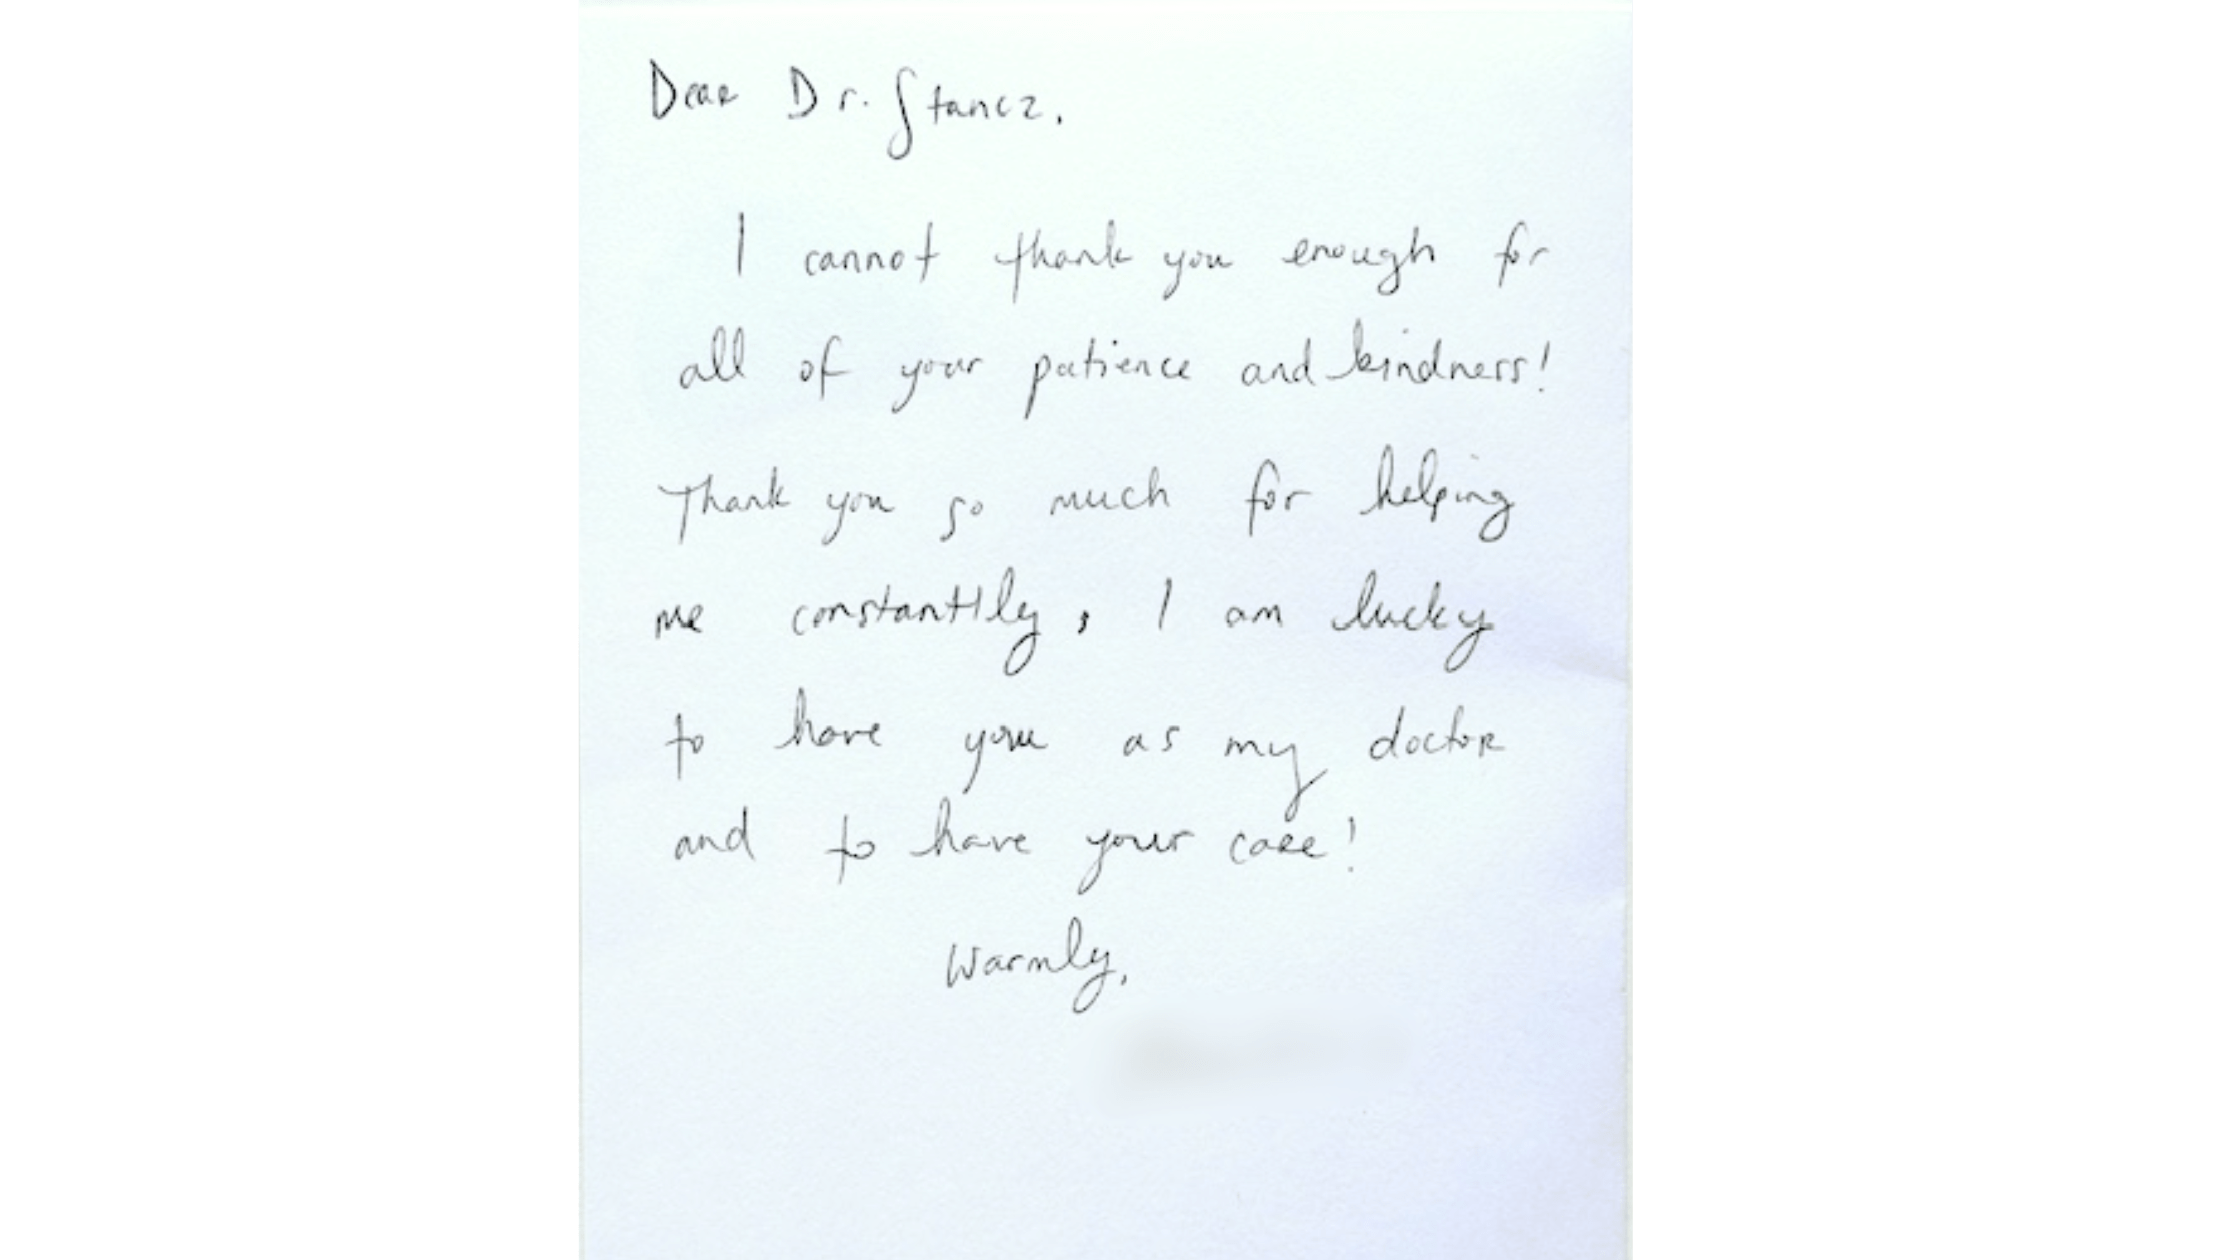 Dear Dr. Stancz,
I cannot thank you enough for
all of your patience and kindness!
Thank you so much for helping
me constantlly, I am lucky
to have you as my doctor
and to have your care!
Warmly,